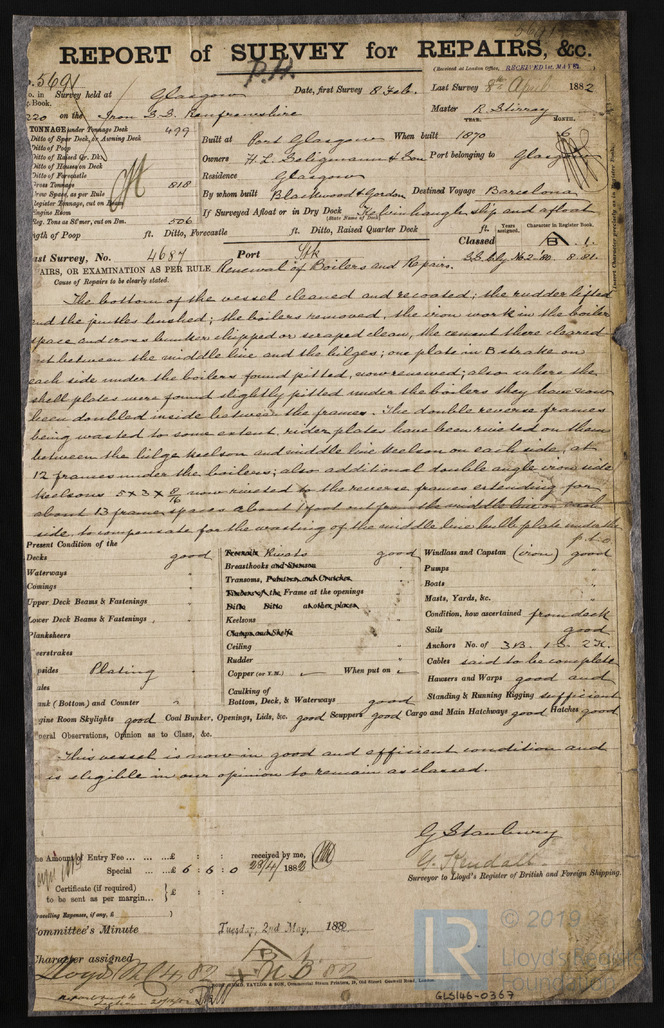 REPORT of SURVEY for REPAIRS, &c.
P.H.
(Received at London Office, RECEIVED 1st MAY 82
5691
Survey held at Glasgow Date, first Survey 8 Feb. Last Survey 8th April 1882
Book.
Master R. Stirray
220 on the Iron S.S. Renfrewshire
YEAR. MONTH.
TONNAGE under Tonnage Deck 499
Built at Port Glasgow When built 1870 6
Ditto of Spar Deck, or Awning Deck
Ditto of Poop
Owners H. L. Seligmann & Son Port belonging to Glasgow
Ditto of Raised Qr. Dk.
Ditto of Houses on Deck
Residence Glasgow
Ditto of Forecastle
Gross Tonnage 818
By whom built Blackwood & Gordon Destined Voyage Barcelona
Crew Space, as per Rule
Register Tonnage, cut on Beam
If Surveyed Afloat or in Dry Dock Kelvinhaugh slip and afloat
(State Name of Dock)
Engine Room
Reg. Tons as St'mer, cut on Bm. 506
Length of Poop ft. Ditto, Forecastle ft. Ditto, Raised Quarter Deck ft.
Years assigned. Character in Register Book.
Classed A 1.
Last Survey, No. 4687 Port Stk
S.S. No. 2-80 8.81.
AIRS, OR EXAMINATION AS PER RULE Renewal of Boilers and Repairs.
Cause of Repairs to be clearly stated.
The bottom of the vessel cleaned and recoated; the rudder lifted
and the pintles bushed; the boilers removed, the iron work in the boiler
space and cross bunker chipped or scraped clean, the cement there cleared
out between the middle line and the bilges; one plate in B strake on
each side under the boilers found pitted, now renewed; also where the
shell plates were found slightly pitted under the boilers they have now
been doubled inside between the frames. The double reverse frames
being wasted to some extent, rider plates have been riveted on them
between the bilge keelson and middle line keelson on each side, at
12 frames under the boilers; also additional double angle iron side
keelsons 5 x 3 x 8/16 now riveted to the reverse frames extending for
about 13 frame spaces about 1 foot out from the middle line on each
side, to compensate for the wasting of the middle line bulb plate under the
p.t.o.
Present Condition of the
Decks good
Waterways "
Comings "
Upper Deck Beams & Fastenings "
Lower Deck Beams & Fastenings "
Planksheers
Topsides Plating "
Plank (Bottom) and Counter "
Engine Room Skylights good Coal Bunker, Openings, Lids, &c. good Scuppers good Cargo and Main Hatchways good Hatches good
Treenails Rivets good
Breasthooks and Stemson "
Transoms, Pointers, and Crutches "
Timbers of the Frame at the openings "
Ditto Ditto at other places "
Keelsons "
Clamps and Shelfs
Ceiling "
Rudder "
Copper (or Y.M.) When put on
Caulking of
Bottom, Deck, & Waterways good
Windlass and Capstan (iron) good
Pumps "
Boats "
Masts, Yards, &c. "
Condition, how ascertained from deck
Sails good
Anchors No. of 3 B. 1 S. 2 K.
Cables said to be complete
Hawsers and Warps good and
Standing & Running Rigging sufficient
General Observations, Opinion as to Class, &c.
This vessel is now in good and efficient condition and
is eligible in our opinion to remain as classed.
G. Stanbury
G. Kendall
Surveyor to Lloyd's Register of British and Foreign Shipping.
The Amount of Entry Fee £ : : received by me,
Special £ 6 : 6 : 0 29/4/ 1882
Certificate (if required) £ : :
to be sent as per margin
Travelling Expenses, if any, £
Committee's Minute Tuesday, 2nd May, 1882
Character assigned
Lloyd's A C 4.82
© 2019
LR
Lloyd's Register Foundation
GLS146-0367